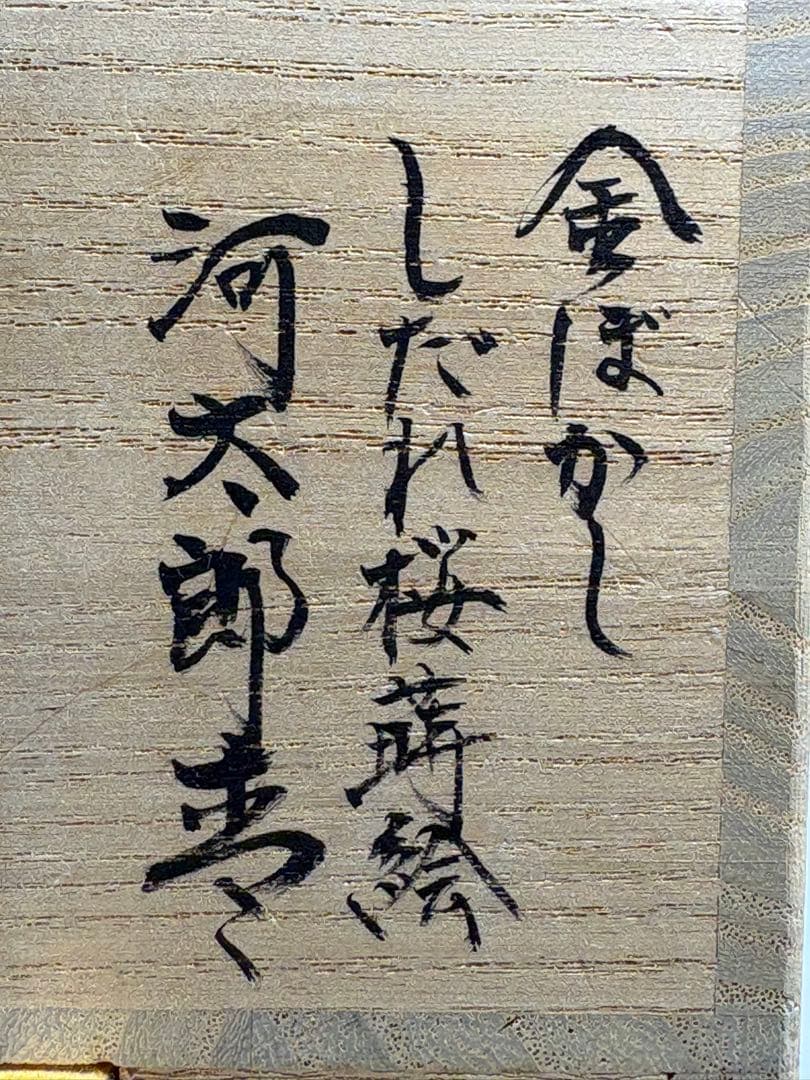 金ぼかし
しだれ桜蒔絵
河太郎造